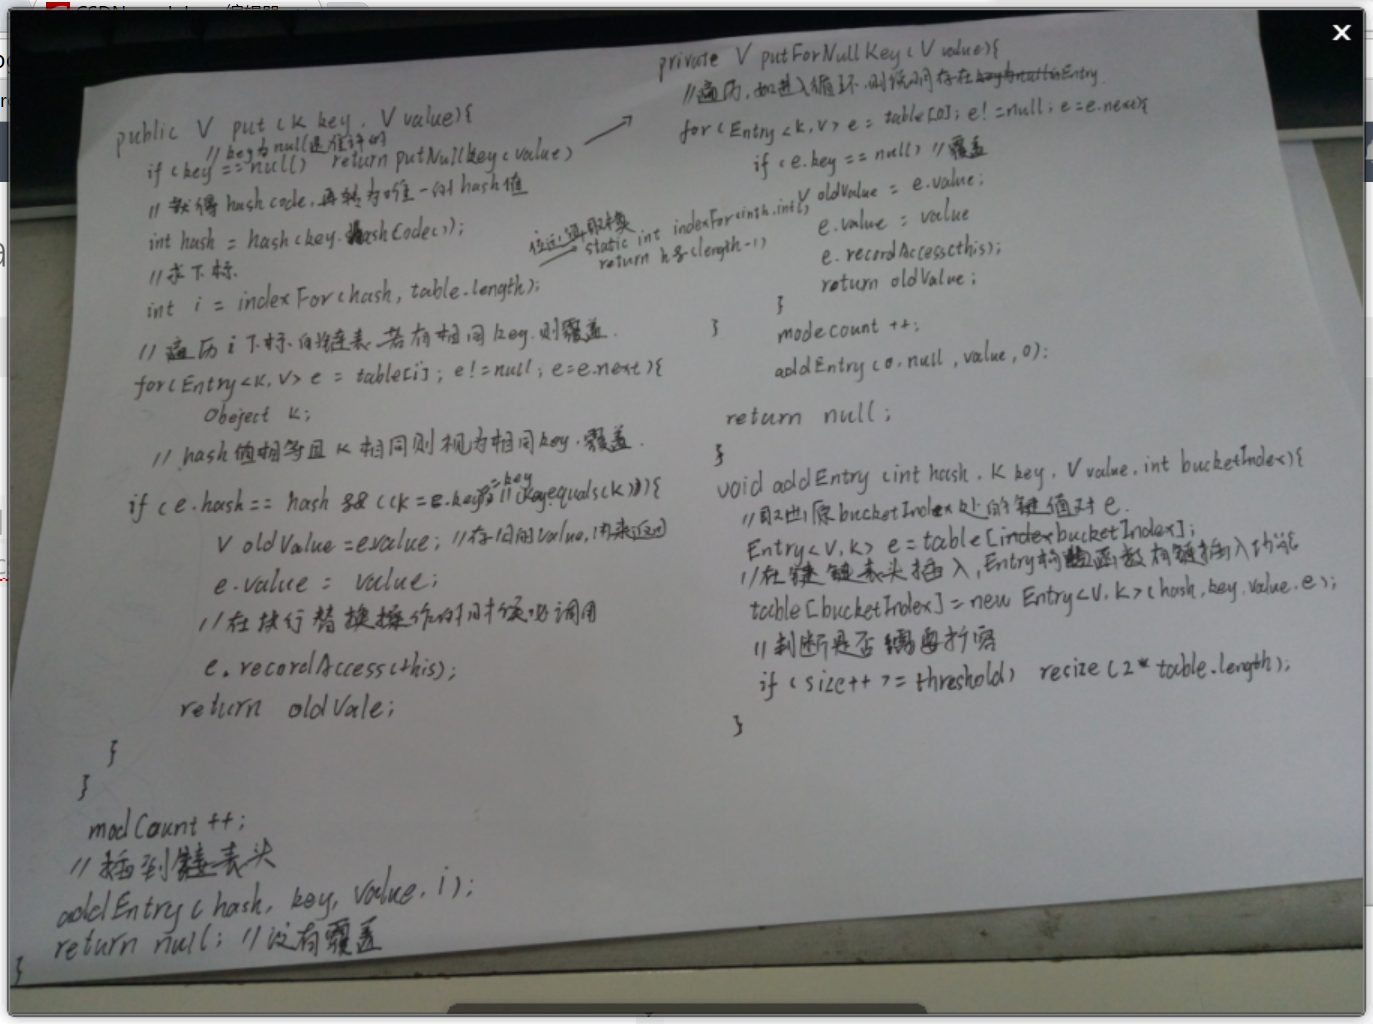 public V put(K key, V value){
//key为null是准许的
if(key==null) return putNullkey(value)
//获得hashcode,再转为唯一的hash值
int hash = hash(key.hashCode());
//求下标
int i = indexFor(hash, table.length);
//遍历i下标的链表,若有相同key,则覆盖.
for(Entry<K,V> e = table[i]; e!=null; e=e.next){
Obeject k;
//hash值相等且K相同则视为相同key,覆盖.
if(e.hash== hash && ((k=e.key)==key || key.equals(k))){
V oldValue =e.value; //存旧的value,用来返回
e.value = value;
//在执行替换操作的时候会调用
e.recordAccess(this);
return oldVale;
}
}
modCount ++;
//插到链表头
addEntry(hash, key, value, i);
return null; //没有覆盖
}
static int indexFor(int h,int l)
return h&(length-1)
private V putForNullKey(V value){
//遍历,如进入循环,则说明存在key为null的Entry
for(Entry<K,V> e = table[0]; e!=null; e=e.next){
if(e.key==null) //覆盖
V oldValue = e.value;
e.value = value
e.recordAccess(this);
return oldValue;
}
}
modecount ++;
addEntry(0,null,value,0);
return null;
}
void addEntry(int hash, K key, V value, int bucketIndex){
//取出原bucketIndex处的键值对e.
Entry<V,K> e=table[indexbucketIndex];
//在键链表头插入,Entry构造函数有链插入功能
table[bucketIndex]=new Entry<V,K>(hash,key,value,e);
//判断是否需要扩容
if(size++ >=threshold) resize(2* table.length);
}